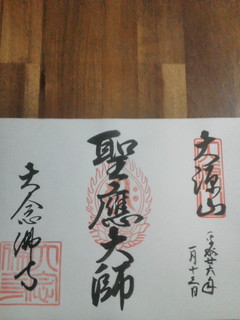 大源山
平成廿六年
一月十三日
聖應大師
大念佛寺